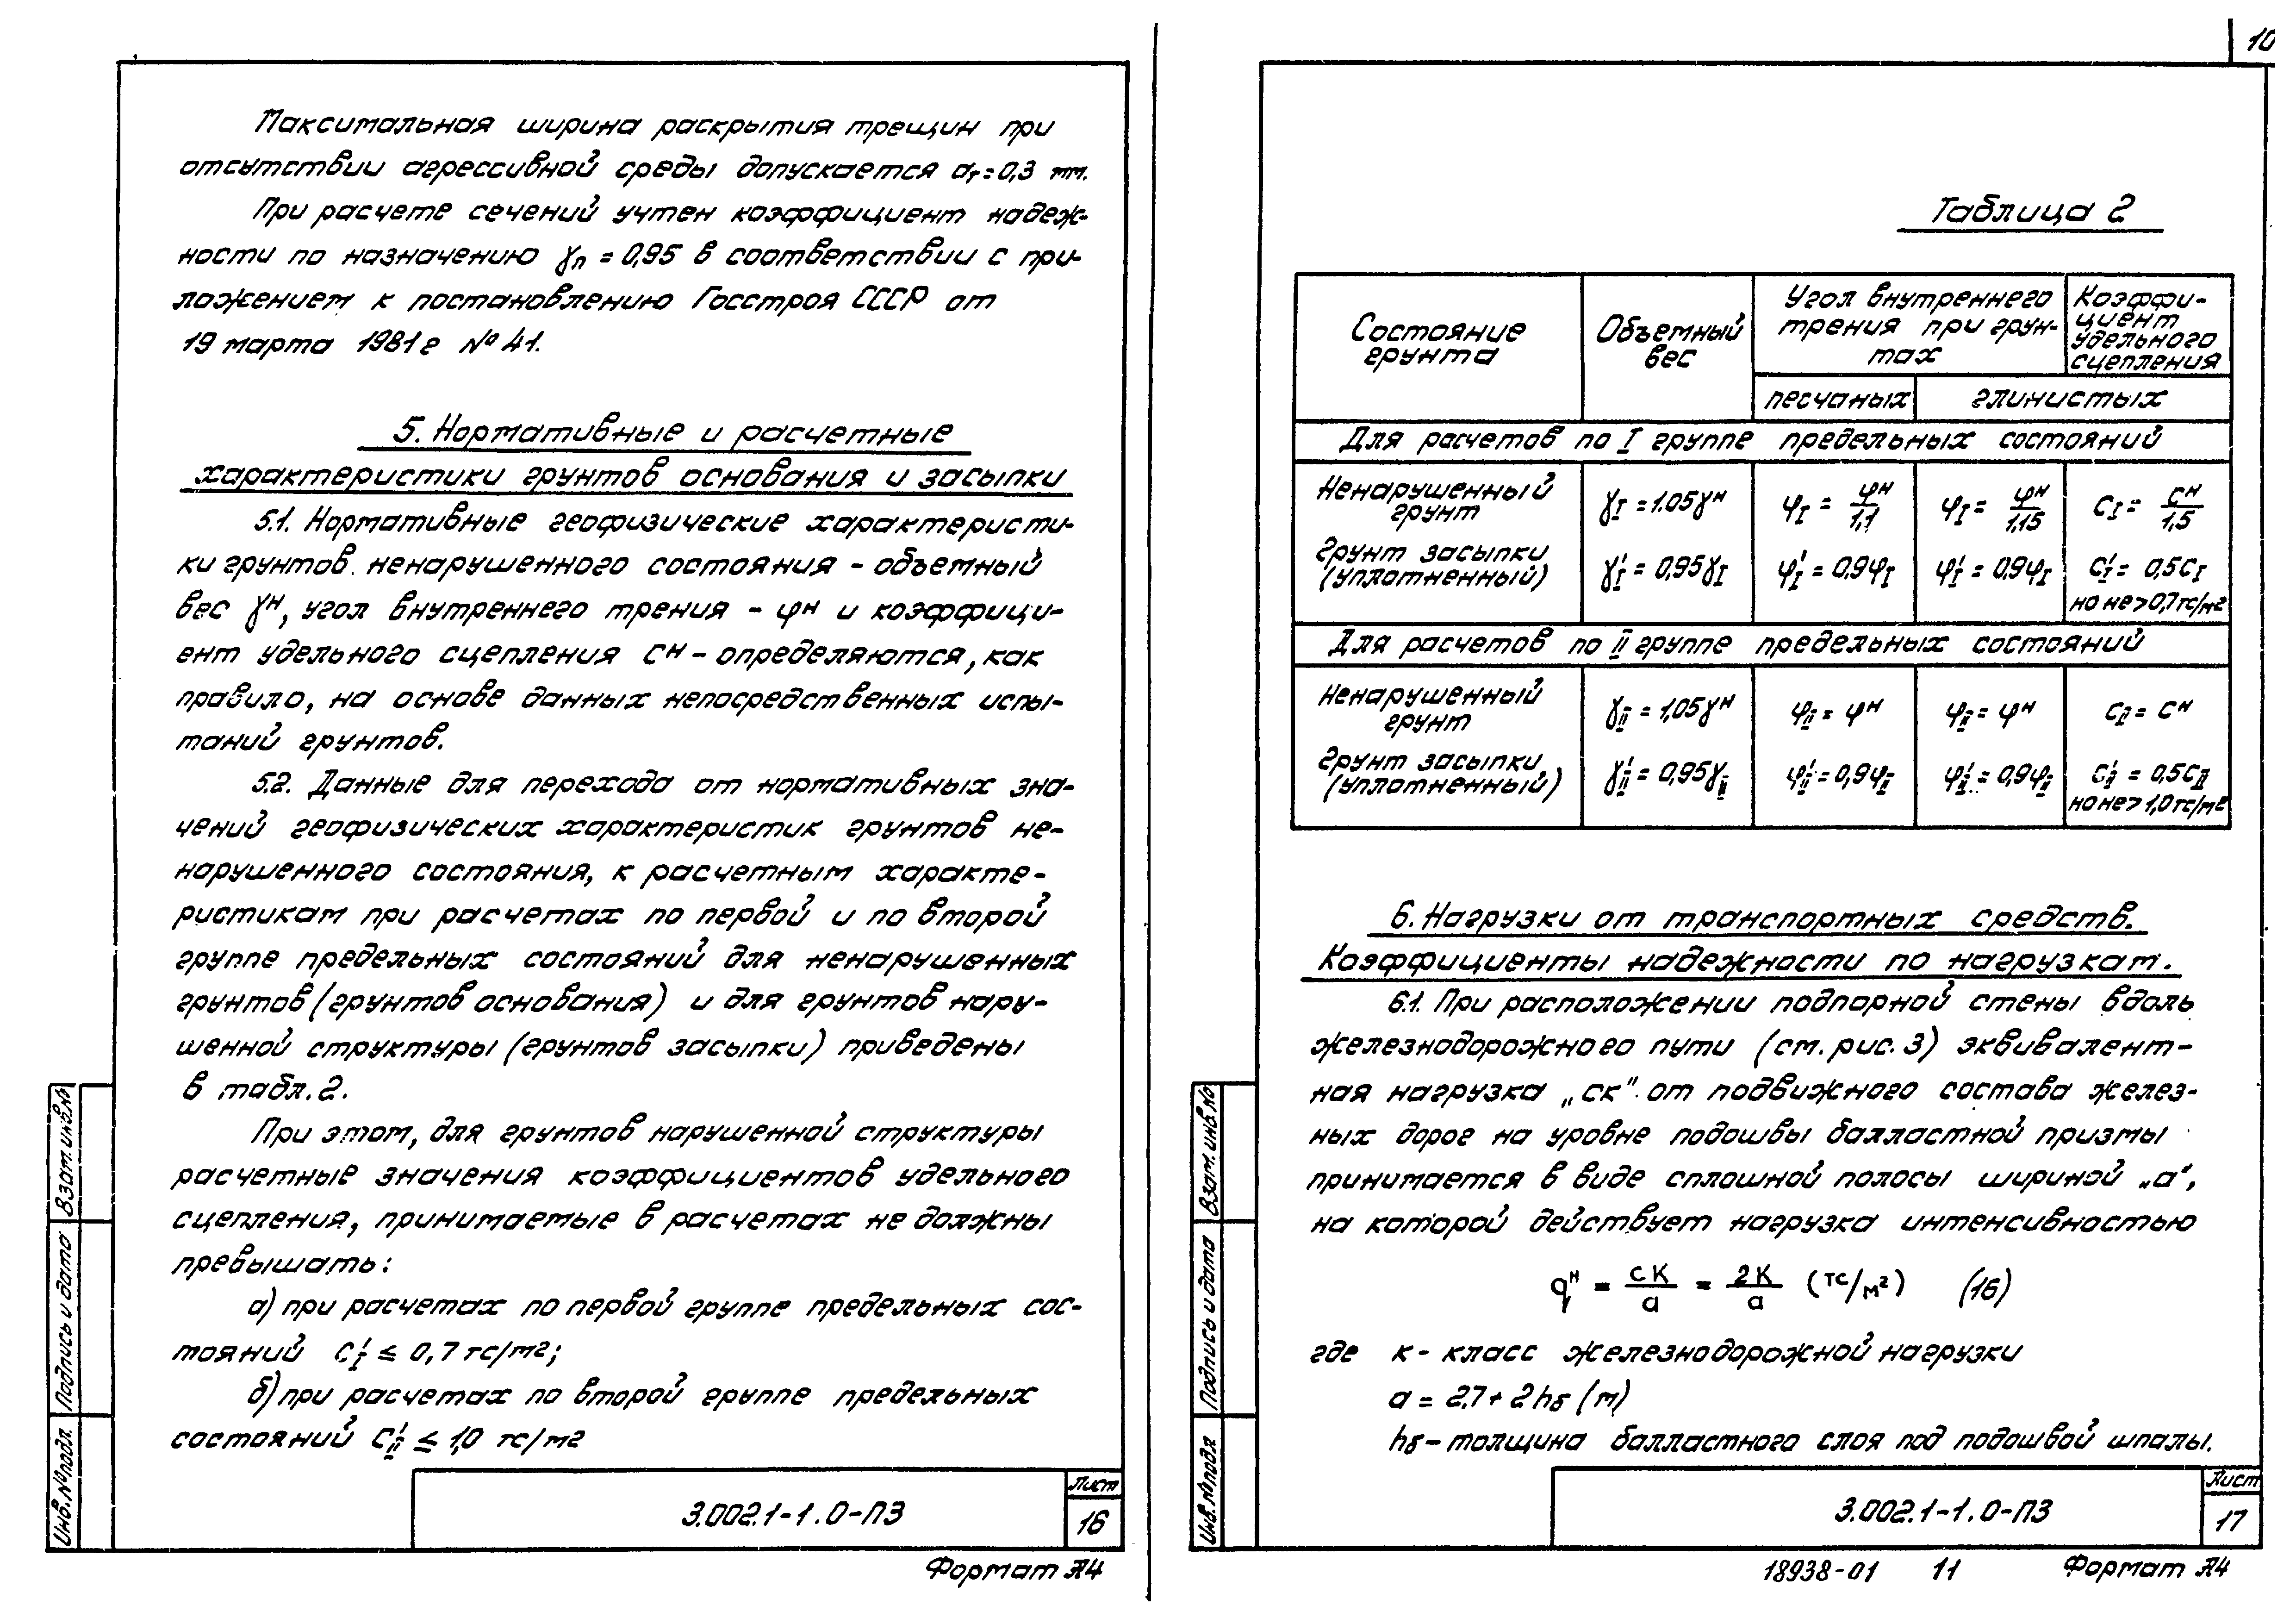 Максимальная ширина раскрытия трещин при
отсутствии агрессивной среды допускается aт=0,3 мм.
При расчете сечений учтен коэффициент надеж-
ности по назначению γn = 0,95 в соответствии с при-
ложением к постановлению Госстроя СССР от
19 марта 1981 г № 41.
5. Нормативные и расчетные
характеристики грунтов основания и засыпки
5.1. Нормативные геофизические характеристи-
ки грунтов ненарушенного состояния - объемный
вес γᴴ, угол внутреннего трения - φᴴ и коэффици-
ент удельного сцепления Cᴴ - определяются, как
правило, на основе данных непосредственных испы-
таний грунтов.
5.2. Данные для перехода от нормативных зна-
чений геофизических характеристик грунтов не-
нарушенного состояния, к расчетным характе-
ристикам при расчетах по первой и по второй
группе предельных состояний для ненарушенных
грунтов (грунтов основания) и для грунтов нару-
шенной структуры (грунтов засыпки) приведены
в табл. 2.
При этом, для грунтов нарушенной структуры
расчетные значения коэффициентов удельного
сцепления, принимаемые в расчетах не должны
превышать:
а) при расчетах по первой группе предельных сос-
тояний C'I ≤ 0,7 тс/м2;
б) при расчетах по второй группе предельных
состояний C'II ≤ 1,0 тс/м2
Взам. инв. №
Подпись и дата
Инв. № подл.
3.002.1-1.0-ПЗ
Лист
16
Формат А4
10
Таблица 2
Состояние грунта
Объемный вес
Угол внутреннего трения при грун-тах
Коэффи-циент удельного сцепления
песчаных
глинистых
Для расчетов по I группе предельных состояний
Ненарушенный грунт γI = 1.05γᴴ φI = φᴴ/1,1 φI = φᴴ/1,15 CI = Cᴴ/1,5
Грунт засыпки (уплотненный) γ'I = 0,95γI φ'I = 0,9φI φ'I = 0,9φI C'I = 0,5CI
но не > 0,7 тс/м2
Для расчетов по II группе предельных состояний
Ненарушенный грунт γII = 1,05γᴴ φII = φᴴ φII = φᴴ CII = Cᴴ
Грунт засыпки (уплотненный) γ'II = 0,95γII φ'II = 0,9φII φ'II = 0,9φII C'II = 0,5CII
но не > 1,0 тс/м2
6. Нагрузки от транспортных средств.
Коэффициенты надежности по нагрузкам.
6.1. При расположении подпорной стены вдоль
железнодорожного пути (см. рис. 3) эквивалент-
ная нагрузка „ск" от подвижного состава желез-
ных дорог на уровне подошвы балластной призмы
принимается в виде сплошной полосы шириной „а",
на которой действует нагрузка интенсивностью
qᴴ = cK/a = 2K/a (тс/м²) (16)
где к - класс железнодорожной нагрузки
a = 2,7 + 2hб (м)
hб - толщина балластного слоя под подошвой шпалы.
Взам. инв. №
Подпись и дата
Инв. № подл
3.002.1-1.0-ПЗ
Лист
17
18938-01 11 Формат А4